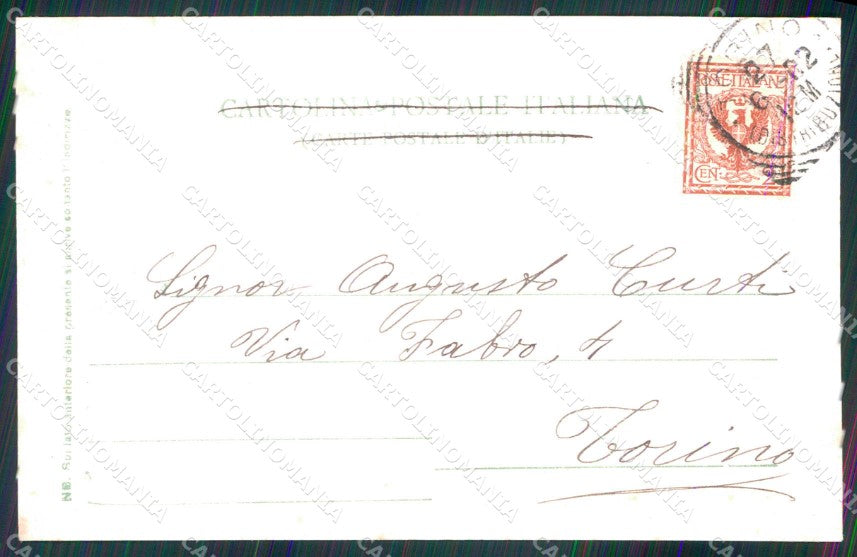 CARTOLINA POSTALE ITALIANA
(CARTE POSTALE D'ITALIE)
POSTE ITALIANE
CEN. 2
Signor Augusto Curti
Via Fabro, 4
Torino
NB. Sul lato anteriore della presente si scrive soltanto
CARTOLINOMANIA